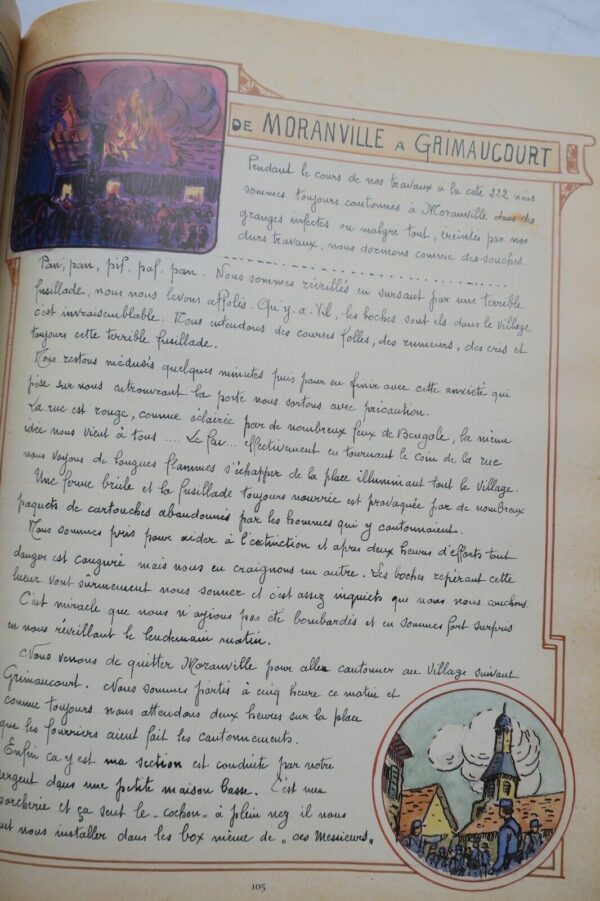 DE MORANVILLE A GRIMAUCOURT
Pendant le cours de nos travaux à la côte 222 nous
sommes toujours cantonnés à Moranville dans des
granges infectes ou malgre tout, éreintés par nos
durs travaux, nous dormons comme des souches.
Pan, pan, pif. paf. pan. Nous sommes réveillés en sursaut par une terrible
fusillade, nous nous levons affolés. Qu'y-a-t-il, les boches sont ils dans le village
c'est invraisemblable. Nous entendons des courses folles, des rumeurs, des cris et
toujours cette terrible fusillade.
Nous restons médusés quelques minutes puis pour en finir avec cette anxiété qui
pèse sur nous entrouvrant la porte nous sortons avec précaution.
La rue est rouge, comme éclairée par de nombreux feux de Bengale, la même
idée nous vient à tous .... Le feu... effectivement en tournant le coin de la rue
nous voyons de longues flammes s'échapper de la place illuminant tout le village.
Une ferme brûle et la fusillade toujours nourrie est provoquée par de nombreux
paquets de cartouches abandonnés par les hommes qui y cantonnaient.
Nous sommes pris pour aider à l'extinction et après deux heures d'efforts tout
danger est conjuré mais nous en craignons un autre. Les boches repérant cette
lueur vont sûrement nous sonner et c'est assez inquiets que nous nous couchons.
C'est miracle que nous n'ayions pas été bombardés et en sommes fort surpris
en nous réveillant le lendemain matin.
Nous venons de quitter Moranville pour aller cantonner au village suivant
Grimaucourt. Nous sommes partis à cinq heure ce matin et
comme toujours nous attendons deux heures sur la place
que les fourriers aient fait les cantonnements.
Enfin ca y est ma section est conduite par notre
sergent dans une petite maison basse. C'est une
porcherie et ça sent le "cochon" à plein nez il nous
faut nous installer dans les box même de "ces Messieurs"
105